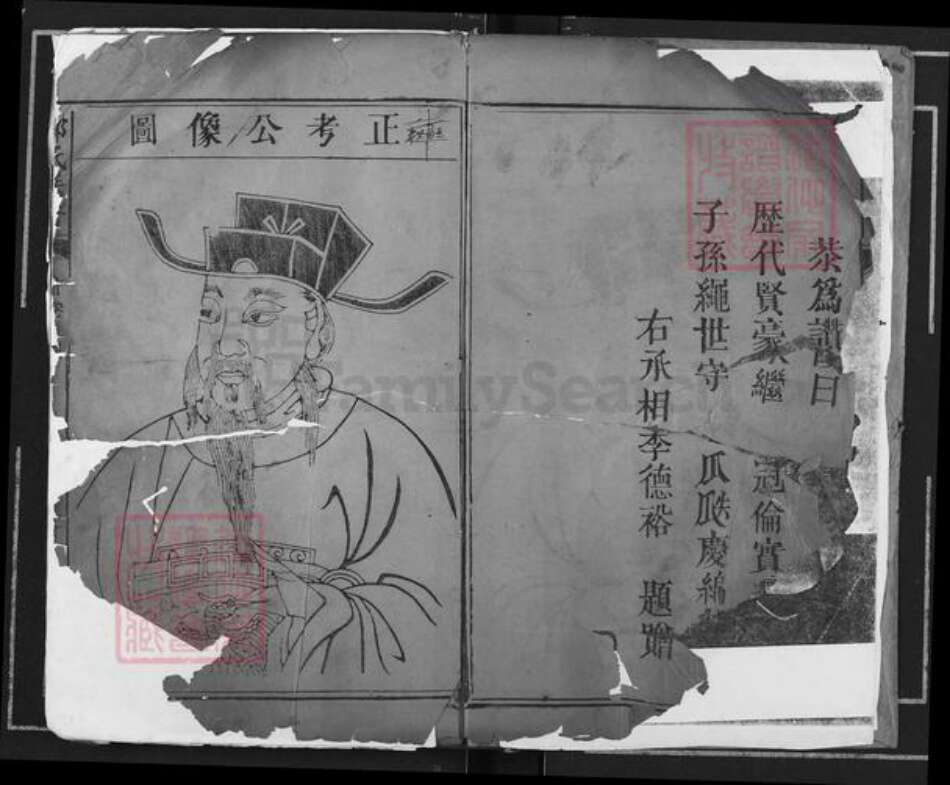 恭為讚曰
歷代賢豪繼 冠倫實
子孫繩世守 瓜瓞慶綿
右丞相李德裕 題贈
正考公像圖
FamilySearch